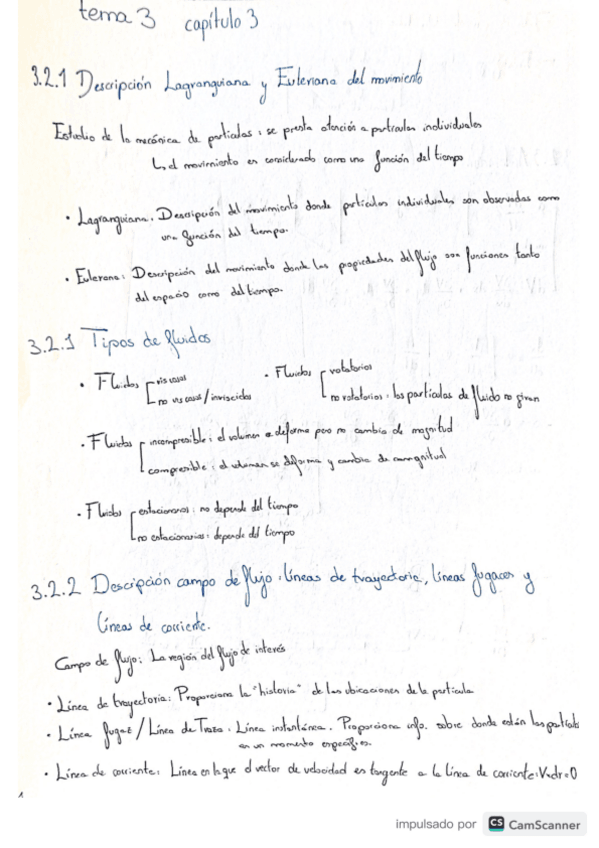 tema 3 capítulo 3
3.2.1 Descripción Lagrangiana y Euleriana del movimiento
Estudio de la mecánica de partículas: se presta atención a partículas individuales
↳ el movimiento es considerado como una función del tiempo
• Lagrangiana: Descripción del movimiento donde partículas individuales son observadas como
una función del tiempo.
• Euleriana: Descripción del movimiento donde las propiedades del flujo son funciones tanto
del espacio como del tiempo.
3.2.1 Tipos de fluidos
• Fluidos viscosos
no viscosos/inviscidos
• Fluidos rotatorios
no rotatorios: las partículas de fluido no giran
• Fluidos incompresible: el volumen se deforma pero no cambia de magnitud
compresible: el volumen se deforma y cambia de magnitud
• Fluidos estacionarios: no depende del tiempo
no estacionarios: depende del tiempo
3.2.2 Descripción campo de flujo: líneas de trayectoria, líneas fugaces y
líneas de corriente.
Campo de flujo: La región del flujo de interés
• Línea de trayectoria: Proporciona la "historia" de las ubicaciones de la partícula
• Línea fugaz / Línea de Traza: Línea instantánea. Proporciona info. sobre donde están las partículas
en un momento específico.
• Línea de corriente: Línea en la que el vector de velocidad es tangente a la línea de corriente: Vxdr=0
impulsado por CS CamScanner